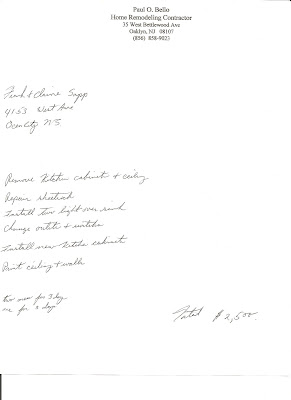 Paul O. Bello
Home Remodeling Contractor
35 West Bettlewood Ave
Oaklyn, NJ 08107
(856) 858-9023
Frank & Claire Sapp
4153 West Ave
Ocean City NJ
Remove Kitchen cabinet & ceiling
Repair sheetrock
Install Two light over sink
Change outlets & switches
Install new Kitchen cabinet
Paint ceiling & walls
two men for 3 day
one for 2 days
Total $2,500.